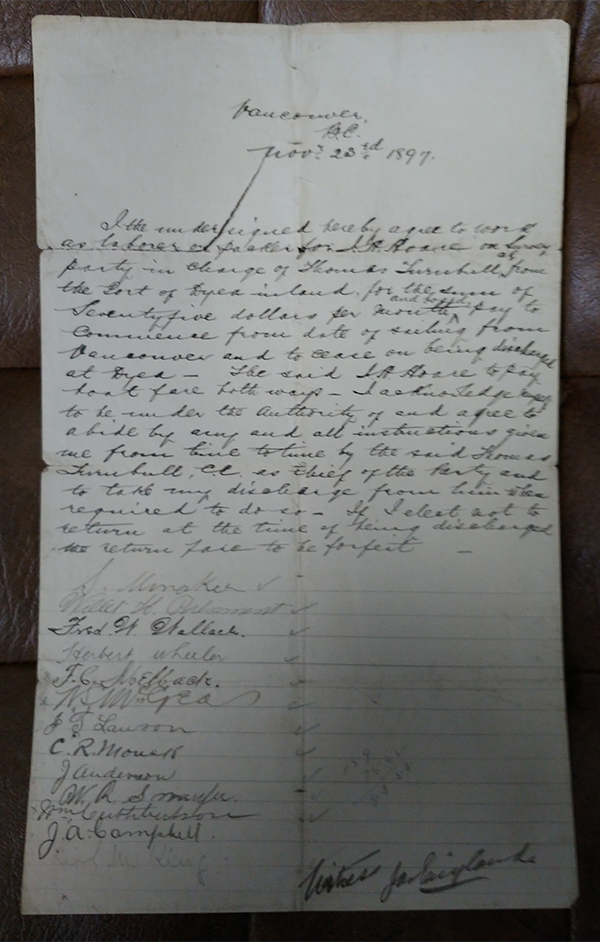 Vancouver,
B.C.
Novr 23rd 1897.
I the undersigned hereby agree to work
as laborer or packer for I. A. Hoare on Survey
party in charge of Thomas Turnbull, at from
the Port of Dyea inland, for the sum of
Seventyfive dollars per month and board, pay to
commence from date of sailing from
Vancouver and to cease on being discharged
at Dyea — The said I. A. Hoare to pay
boat fare both ways — I acknowledge
to be under the authority of and agree to
abide by any and all instructions given
me from time to time by the said Thomas
Turnbull, C.E. as chief of the Party and
to take my discharge from him when
required to do so — If I elect not to
return at the time of being discharged
return fare to be forfeit —
Fred. W. Wallace.
Herbert Wheeler
W. McGea
J T Lawson
C. R. Monck
J Anderson
W. R.
Wm Cuthbertson
J. A. Campbell.
M. King
Witness